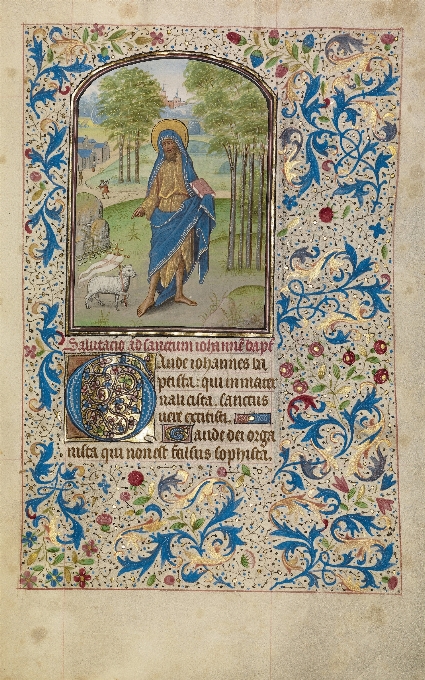 Salutacio ad sanctum iohannē bapt
Gaude iohannes ba
ptista: qui in mater
nali cista. sanctus
vere extitisti.
Gaude dei orga
nista qui non est falsus sophista.